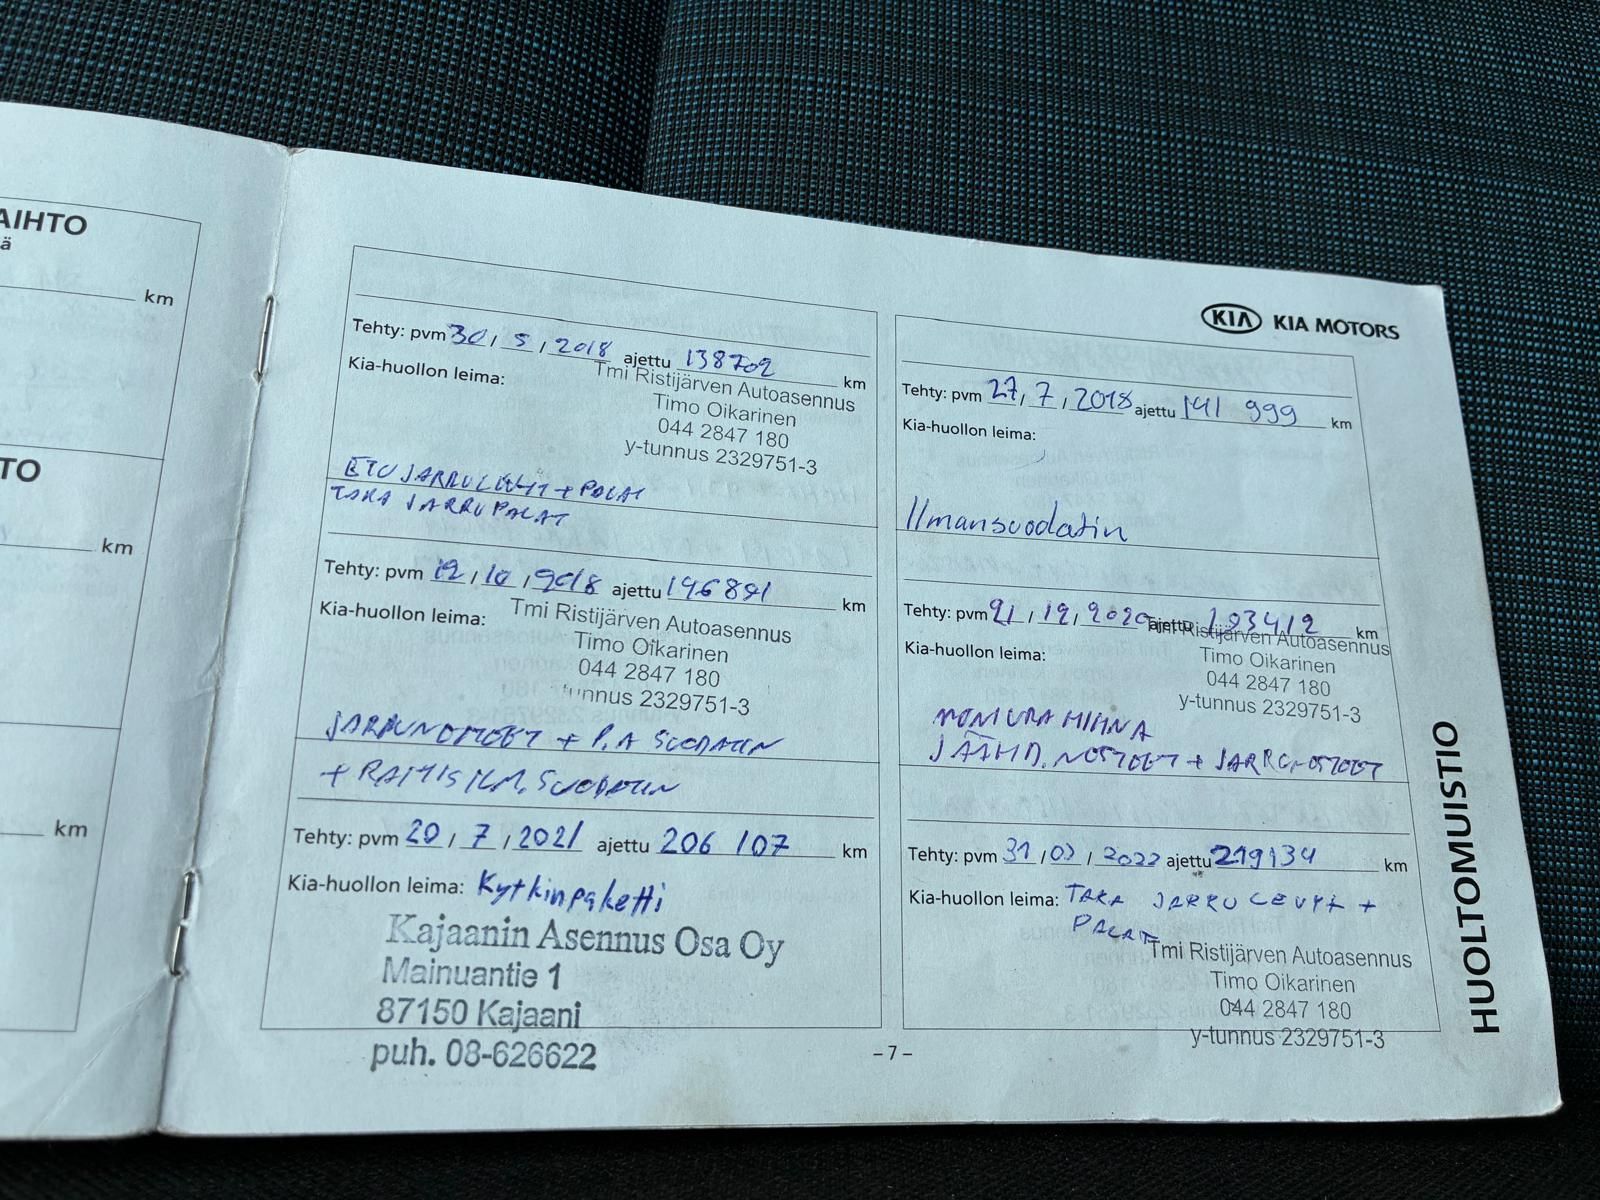 AIHTO
ä
km
TO
km
km
KIA KIA MOTORS
Tehty: pvm 30 / 5 / 2018 ajettu 138702 km
Kia-huollon leima:
Tmi Ristijärven Autoasennus
Timo Oikarinen
044 2847 180
y-tunnus 2329751-3
ETU JARRULEVYT + PALAT
TAKA JARRUPALAT
Tehty: pvm 27 / 7 / 2018 ajettu 141 999 km
Kia-huollon leima:
Ilmansuodatin
Tehty: pvm 12 / 10 / 2018 ajettu 146891 km
Kia-huollon leima:
Tmi Ristijärven Autoasennus
Timo Oikarinen
044 2847 180
tunnus 2329751-3
JARRUNESTEET + P.A SUODATIN
+ RAITIS ILM. SUODATIN
Tehty: pvm 21 / 12 / 2020 ajettu 193412 km
Kia-huollon leima:
Tmi Ristijärven Autoasennus
Timo Oikarinen
044 2847 180
y-tunnus 2329751-3
MONIURAHIHNA
JÄÄHD. NESTEET + JARRUNESTEET
Tehty: pvm 20 / 7 / 2021 ajettu 206 107 km
Kia-huollon leima: Kytkinpaketti
Kajaanin Asennus Osa Oy
Mainuantie 1
87150 Kajaani
puh. 08-626622
Tehty: pvm 31 / 03 / 2022 ajettu 219134 km
Kia-huollon leima: TAKA JARRULEVYT +
PALAT
Tmi Ristijärven Autoasennus
Timo Oikarinen
044 2847 180
y-tunnus 2329751-3
HUOLTOMUISTIO
–7–